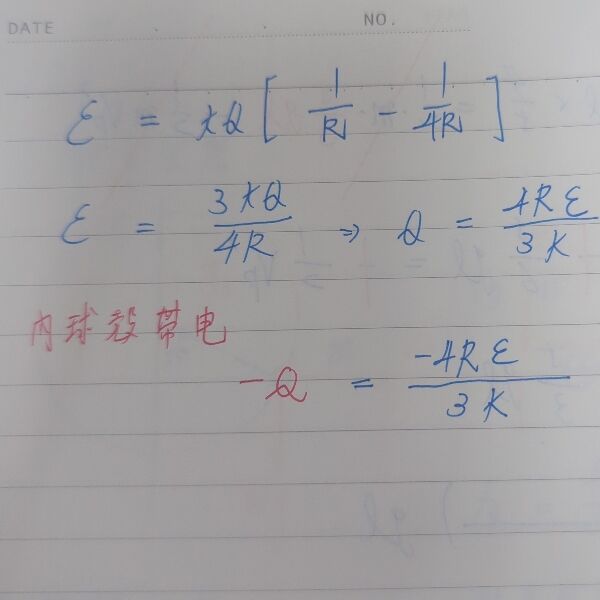 DATE NO.
ε = kQ [ 1/R − 1/4R ]
ε = 3kQ/4R ⇒ Q = 4Rε/3K
内球殼带电
−Q = −4Rε/3K